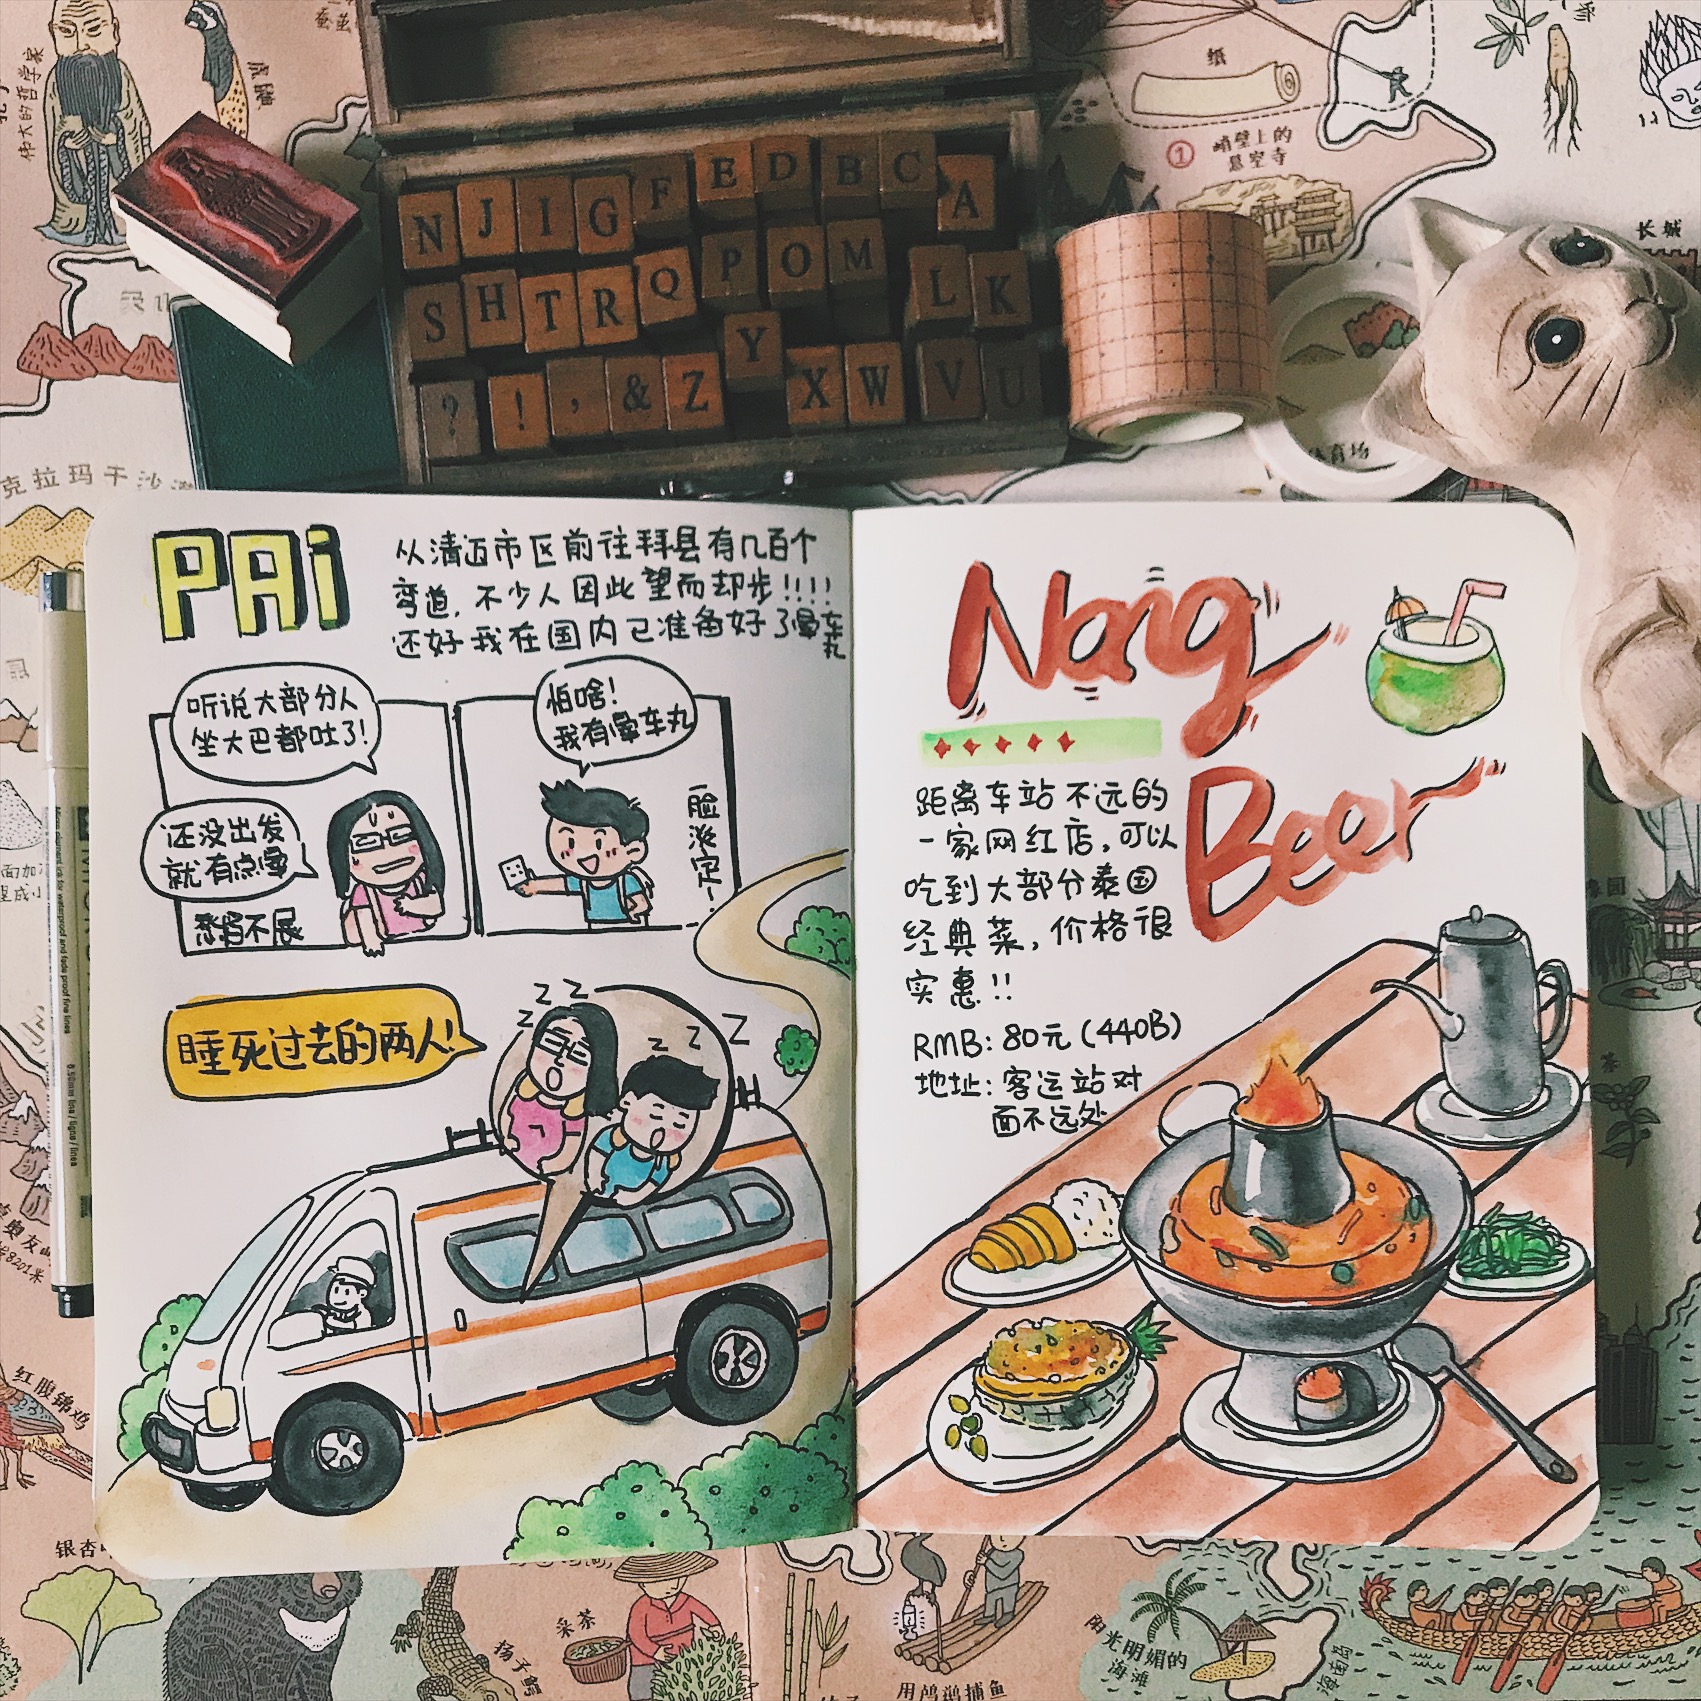 伟大的哲学家
纸
①
峭壁上的
悬空寺
长城
N J I G F E D B C A
S H T R Q P O M L K
? ! , & Z Y X W V U
克拉玛干沙漠
PAi
从清迈市区前往拜县有几百个
弯道,不少人因此望而却步!!!!
还好我在国内已准备好了晕车丸
听说大部分人
坐大巴都吐了!
还没出发
就有点晕
愁眉不展
怕啥!
我有晕车丸
脸淡定~!
睡死过去的两人!
z z z z z z
Nong
Beer
距离车站不远的
一家网红店,可以
吃到大部分泰国
经典菜,价格很
实惠!!
RMB: 80元(440B)
地址: 客运站对
面不远处
茶
红腹锦鸡
银杏
采茶
扬子鳄
用鸬鹚捕鱼
阳光明媚的
海滩